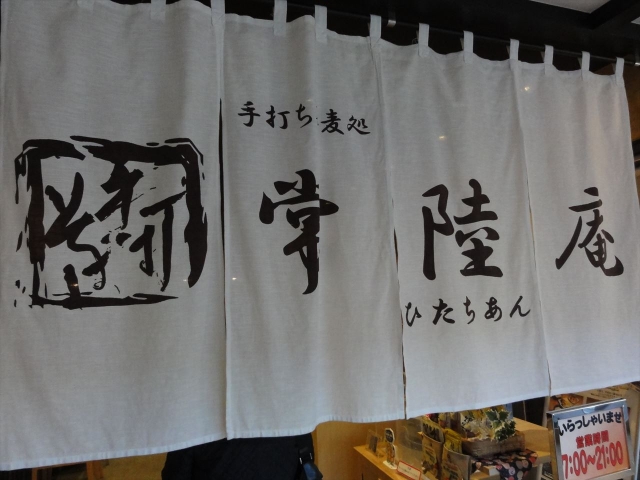 手打ち麦処
常陸庵
ひたちあん
手打
そば
いらっしゃいませ
営業時間
7:00〜21:00